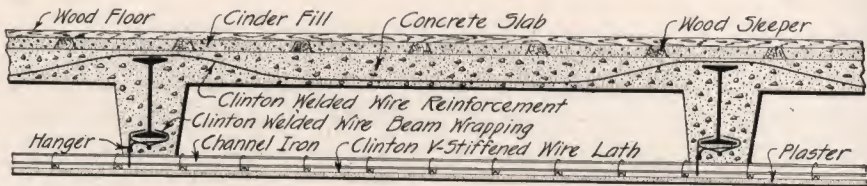 Wood Floor
Cinder Fill
Concrete Slab
Wood Sleeper
Clinton Welded Wire Reinforcement
Clinton Welded Wire Beam Wrapping
Hanger
Channel Iron
Clinton V-Stiffened Wire Lath
Plaster